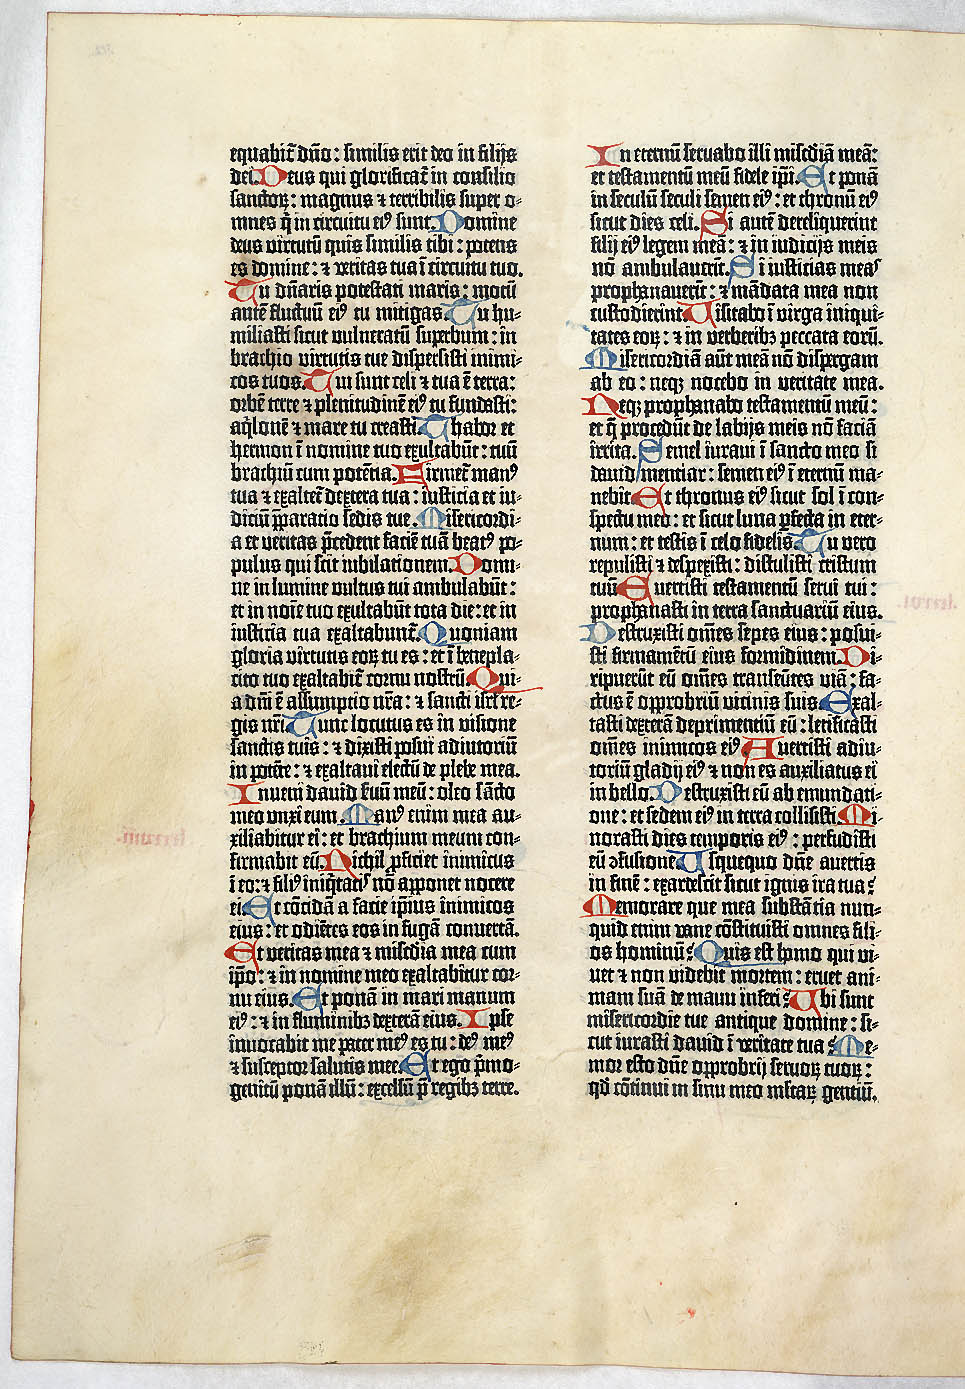 equabit̄ dn̄o : similis erit deo in filijs
dei. Deus qui glorificat̄ in consilio
sanctoꝝ : magnus ⁊ terribilis super o⸗
mnes q̄ in circuitu eiꝰ sunt. Domine
deus virtutū quis similis tibi : potens
es domine : ⁊ veritas tua ī circuitu tuo.
Tu dn̄aris potestati maris : motū
autē fluctuū eiꝰ tu mitigas. Tu hu⸗
miliasti sicut vulneratū superbum : in
brachio virtutis tue dispersisti inimi⸗
cos tuos. Tui sunt celi ⁊ tua ē terra :
orbē terre ⁊ plenitudinē eiꝰ tu fundasti :
aq̇lonē ⁊ mare tu creasti. Thabor et
hermon ī nomine tuo exultabūt : tuū
brachiū cum potentia. Firmet̄ manꝰ
tua ⁊ exaltet̄ dextera tua : iusticia et iu⸗
diciū p̄paratio sedis tue. Misericordi⸗
a et veritas p̄cedent faciē tuā beatꝰ po⸗
pulus qui scit iubilationem. Domi⸗
ne in lumine vultus tui ambulabūt :
et in noīe tuo exultabūt tota die : et in
iusticia tua exaltabunt̄. Quoniam
gloria virtutis eoꝝ tu es : et ī benepla⸗
cito tuo exaltabit̄ cornu nostrū. Qui⸗
a dn̄i ē assumptio nr̄a : ⁊ sancti isrl̄ re⸗
gis nr̄i. Tunc locutus es in visione
sanctis tuis : ⁊ dixisti posui adiutoriū
in potēte : ⁊ exaltavi electū de plebe mea.
Inveni david s̄vuū meū : oleo sācto
meo unxi eum. Manꝰ enim mea au⸗
xiliabitur ei : et brachium meum con⸗
firmabit eū. Nichil ꝓficiet inimicus
ī eo : ⁊ filiꝰ iniq̇tatꝭ nō apponet nocere
ei. Et cōcidā a facie ipīus inimicos
eius : et odiētes eos in fugā convertā.
Et veritas mea ⁊ misc̄dia mea cum
ip̄o : ⁊ in nomine meo exaltabitur cor⸗
nu eius. Et ponā in mari manum
eiꝰ : ⁊ in fluminibꝫ dexterā eius. Ipse
invocabit me pater meꝰ es tu : deꝰ meꝰ
⁊ susceptor salutis mee. Et ego p̄mo⸗
genitū ponā illū : excelsū p̄ regibꝫ terre.
In eternū servabo illi misc̄diā meā :
et testamentū meū fidele ip̄i. Et ponā
in seculū seculi semen eiꝰ : et thronū eiꝰ
sicut dies celi. Si autē dereliquerint
filij eiꝰ legem meā : ⁊ in iudicijs meis
nō ambulaverīt. Si iusticias meas
prophanaverīt : ⁊ mādata mea non
custodierint. Visitabo ī virga iniqui⸗
tates eoꝝ : ⁊ in verberibꝫ peccata eorū.
Misericordiā aūt meā nō dispergam
ab eo : neqꝫ nocebo in veritate mea.
Neqꝫ prophanabo testamentū meū :
et q̄ procedūt de labijs meis nō faciā
irrita. Semel iuravi ī sancto meo si
david mentiar : semen eiꝰ ī eternū ma⸗
nebit. Et thronus eiꝰ sicut sol ī con⸗
spectu meo : et sicut luna ꝑfecta in eter⸗
num : et testis ī celo fidelis. Tu vero
repulisti ⁊ despexisti : distulisti cristum
tuū. Evertisti testamentū servi tui :
prophanasti in terra sanctuariū eius.
Destruxisti om̄es sepes eius : posui⸗
sti firmamētū eius formidinem. Di⸗
ripuerūt eū om̄es transeūtes viā : fa⸗
ctus ē opprobriū vicinis suis. Exal⸗
tasti dexterā deprimentiū eū : letificasti
om̄es inimicos eiꝰ. Avertisti adiu⸗
toriū gladij eiꝰ ⁊ non es auxiliatus ei
in bello. Destruxisti eū ab emundati⸗
one : et sedem eiꝰ in terra collisisti. Mi⸗
norasti dies temporis eiꝰ : perfudisti
eū ꝯfusione. Usquequo dn̄e avertis
in finē : exardescit sicut ignis ira tua?
Memorare que mea substātia nun⸗
quid enim vane cōstituisti omnes fili⸗
os hominū? Quis est homo qui vi⸗
vet ⁊ non videbit mortem : eruet ani⸗
mam suā de manu inferi? Ubi sunt
misericordie tue antique domine : si⸗
cut iurasti david ī veritate tua? Me⸗
mor esto dn̄e opprobrij servoꝝ tuoꝝ :
qd̄ cōtinui in sinu meo mltaꝝ gentiū.